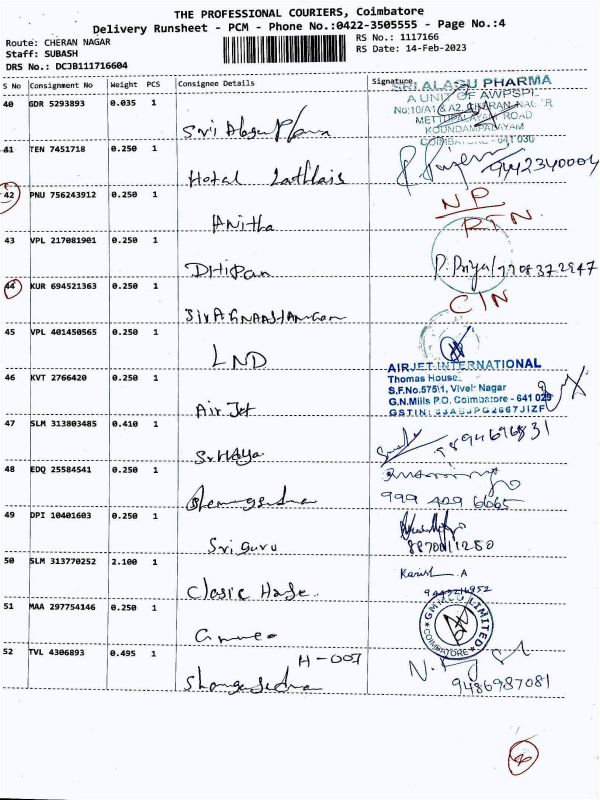 THE PROFESSIONAL COURIERS, Coimbatore
Delivery Runsheet - PCM - Phone No.:0422-3505555 - Page No.:4
Route: CHERAN NAGAR
Staff: SUBASH
DRS No.: DCJB111716604
RS No.: 1117166
RS Date: 14-Feb-2023
S No Consignment No Weight PCS Consignee Details Signature
40 GDR 5293893 0.035 1
SRI ALAGU PHARMA
A UNIT OF AWPSPL
No:10/A1 & A2, CHERAN NAGAR
METTUPALAYAM ROAD
KOUNDAMPALAYAM
COIMBATORE - 641 030
41 TEN 7451718 0.250 1
Hotal 9442340004
42 PNU 756243912 0.250 1
Anitha
NP
RTN
43 VPL 217081901 0.250 1
DHipan P. Priya/7708372847
44 KUR 694521363 0.250 1
C/N
45 VPL 401450565 0.250 1
LND
46 KVT 2766420 0.250 1
Air Jet
AIRJET INTERNATIONAL
Thomas House
S.F.No.575\1, Vivek Nagar
G.N.Mills P.O, Coimbatore - 641 029
47 SLM 313803485 0.410 1
9894696831
48 EDQ 25584541 0.250 1
999 409 6665
49 DPI 10401603 0.250 1
Sri guru 8870011280
50 SLM 313770252 2.100 1
Clasic
51 MAA 297754146 0.250 1
LIMITED
COIMBATORE
52 TVL 4306893 0.495 1
H-007
9486987081